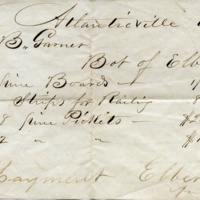 Atlanticville
B. Garner
Bot of Elbe
Pine Boards
Strips for Railing
8 pine Pickets — $2
2 " "
payment Elber